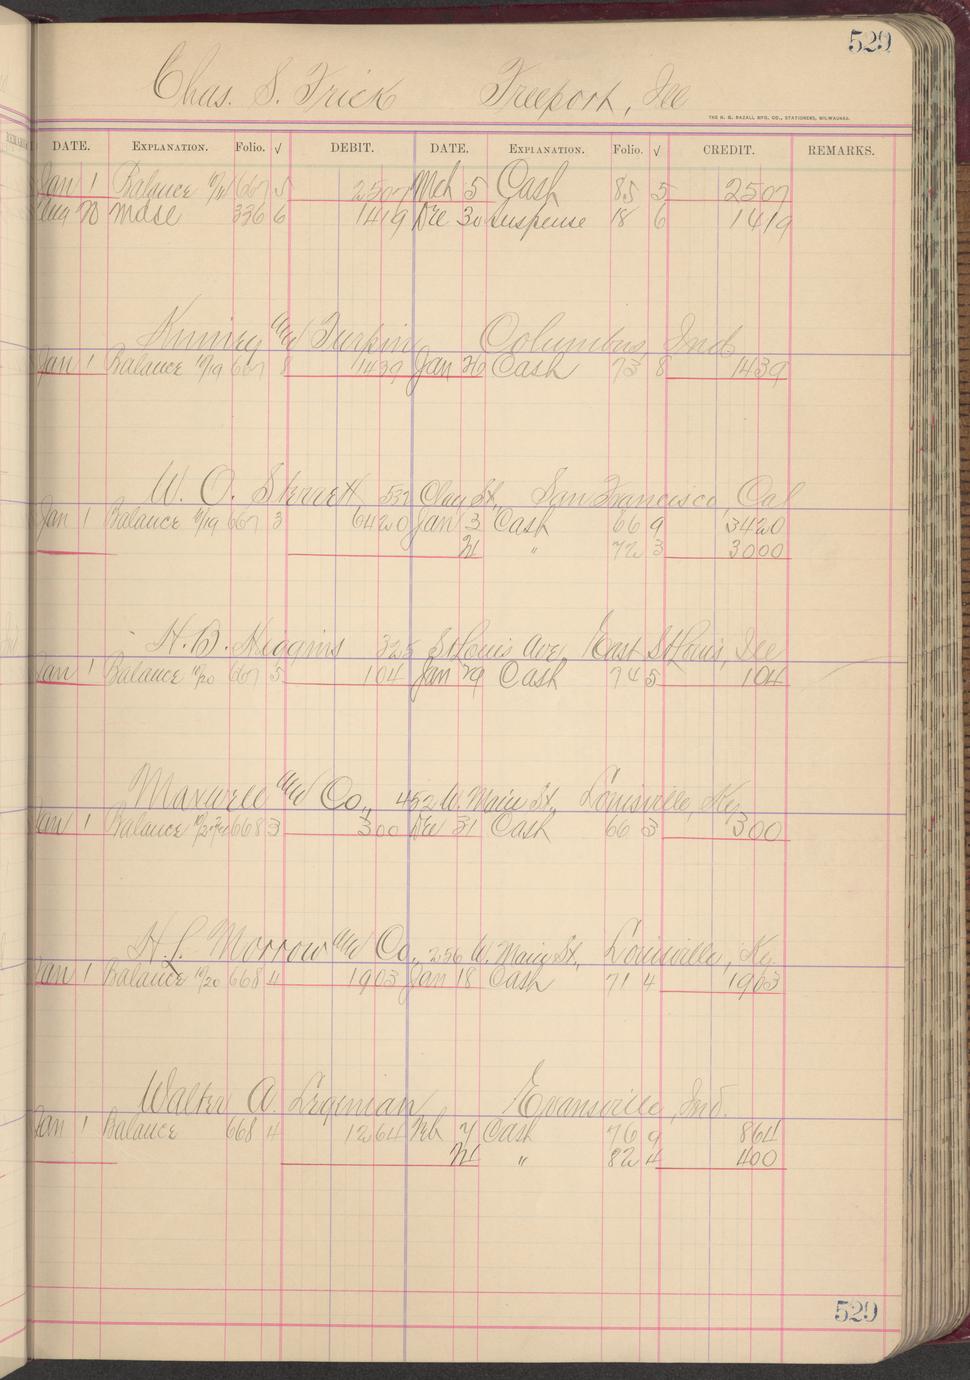 529
Chas. S. Frick Freeport, Ill
THE H. G. RAZALL MFG. CO., STATIONERS, MILWAUKEE.
DATE. EXPLANATION. Folio. √ DEBIT. DATE. EXPLANATION. Folio. √ CREDIT. REMARKS.
Jan 1 Balance 667 5 2507 Mch 5 Cash 85 5 2507
Aug 20 Mdse 336 6 1419 Dec 30 Suspense 18 6 1419
and Durkin Columbus, Ind
Jan 1 Balance 12/19 667 8 1439 Jan 26 Cash 73 8 1439
W. O. 532 Clay St., San Francisco, Cal
Jan 1 Balance 11/19 667 3 6420 Jan 3 Cash 66 9 3420
21 " 72 3 3000
H. B. Higgins 325 St Louis Ave, East St Louis, Ill
Jan 1 Balance 12/20 667 5 104 Jan 29 Cash 74 5 104
Maxwell and Co., 452 W. Main St., Louisville, Ky.
Jan 1 Balance 668 3 300 Dec 31 Cash 66 3 300
H. L. Morrow and Co., 256 W. Main St., Louisville, Ky.
Jan 1 Balance 11/20 668 4 1903 Jan 18 Cash 71 4 1903
Walter A. Evansville, Ind.
Jan 1 Balance 668 4 1264 Feb 7 Cash 76 9 864
21 " 82 4 400
529